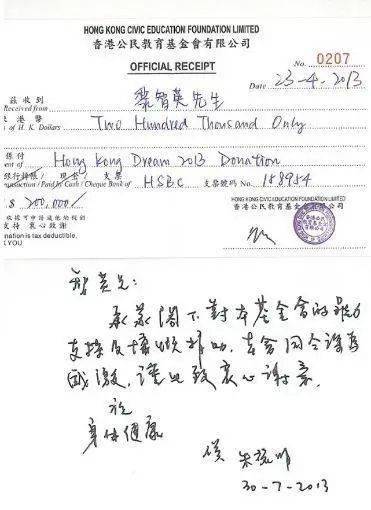 HONG KONG CIVIC EDUCATION FOUNDATION LIMITED
香港公民教育基金會有限公司
OFFICIAL RECEIPT
No. 0207
Date 23-4-2013
茲收到
Received from
黎智英先生
港幣
of H. K. Dollars Two Hundred Thousand Only
係付
ent of Hong Kong Dream 2013 Donation
銀行轉賬 / 現金 / 支票
ansaction / Paid by Cash / Cheque Bank of HSBC 支票號码 No. 188954
$ 200,000/
HONG KONG CIVIC EDUCATION FOUNDATION LIMITED
香港公民教育基金會有限公司
收據可申請
支持 衷心致謝
nation is tax deductible.
K YOU
智英兄:
承蒙閣下對本基金會的鼎力
支持及慷慨捐助,本會同仝深為
感激,謹此致衷心謝意。
祝
身体健康
朱耀明
30-7-2013